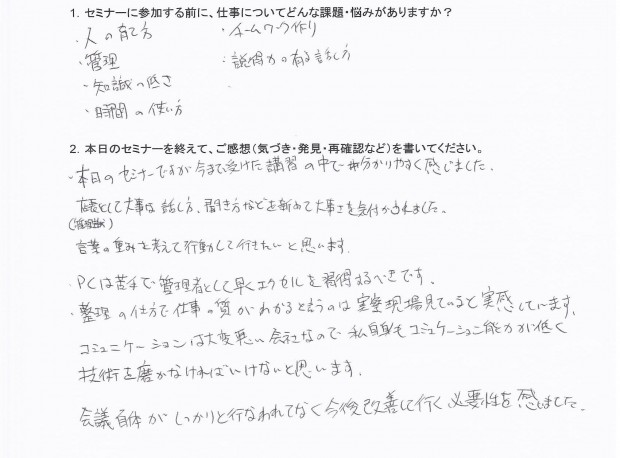 1. セミナーに参加する前に、仕事についてどんな課題・悩みがありますか？
・人の育て方　・チームワーク作り
・管理　・説得力の有る話し方
・知識の低さ
・時間の使い方
2. 本日のセミナーを終えて、ご感想（気づき・発見・再確認など）を書いてください。
・本日のセミナーですが今まで受けた講習の中で一番分かりやすく感じました。
として大事な話し方、聞き方などを改めて大事さを気付かされました。
(管理者)
言葉の重みを考えて行動して行きたいと思います。
・PCは苦手で管理者として早くエクセルを習得するべきです。
・整理の仕方で仕事の質がわかると言うのは実際現場見ていると実感しています。
コミュニケーションは大変悪い会社なので私自身もコミュケーション能力が低く
技術を磨かなければいけないと思います。
会議自体がしっかりと行なわれてなく今後改善して行く必要性を感じました。